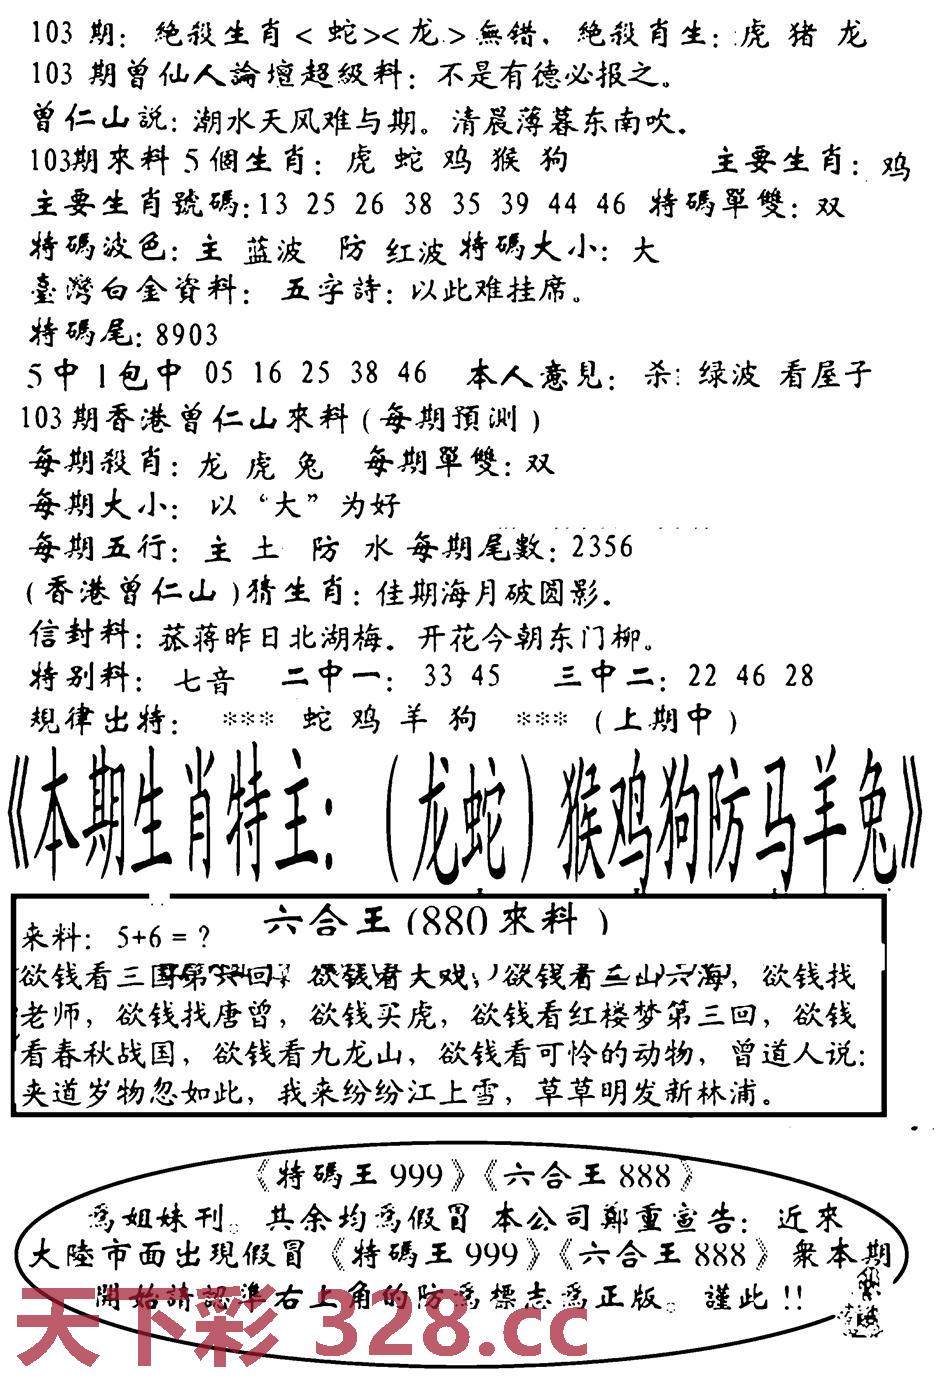 103 期: 絶殺生肖< 蛇><龙>無错. 絶殺肖生: 虎 猪 龙
103 期曾仙人論壇超級料: 不是有德必报之。
曾仁山説: 潮水天风难与期。清晨薄暮东南吹.
103期來料 5 個生肖: 虎 蛇 鸡 猴 狗 主要生肖: 鸡
主要生肖號碼: 13 25 26 38 35 39 44 46 特碼單雙: 双
特碼波色: 主 蓝波 防 红波 特碼大小: 大
臺灣白金資料: 五字詩: 以此难挂席。
特碼尾: 8903
5 中 1 包中 05 16 25 38 46 本人意見: 杀: 绿波 看屋子
103 期香港曾仁山來料 ( 每期預測 )
每期殺肖: 龙 虎 兔 每期單雙: 双
每期大小: 以“大”为好
每期五行: 主 土 防 水 每期尾數: 2356
( 香港曾仁山 ) 猜生肖: 佳期海月破圆影.
信封料: 菰蒋昨日北湖梅. 开花今朝东门柳。
特别料: 七音 二中一: 33 45 三中二: 22 46 28
規律出特: *** 蛇 鸡 羊 狗 *** ( 上期中 )
《本期生肖特主: (龙蛇) 猴鸡狗防马羊兔》
六合王 (880 來料 )
来料: 5+6 = ?
欲钱看三国第六回, 欲钱看大戏, 欲钱看三山六海, 欲钱找
老师, 欲钱找唐曾, 欲钱买虎, 欲钱看红楼梦第三回, 欲钱
看春秋战国, 欲钱看九龙山, 欲钱看可怜的动物, 曾道人说:
夹道岁物忽如此, 我来纷纷江上雪, 草草明发新林浦。
《特碼王 999》《六合王 888》
為姐妹刊。其余均為假冒 本公司鄭重宣告: 近來
大陸市面出現假冒 《特碼王 999》《六合王 888》 衆本期
開始請認準右上角的防為標志為正版。謹此 !!
天下彩 328.cc